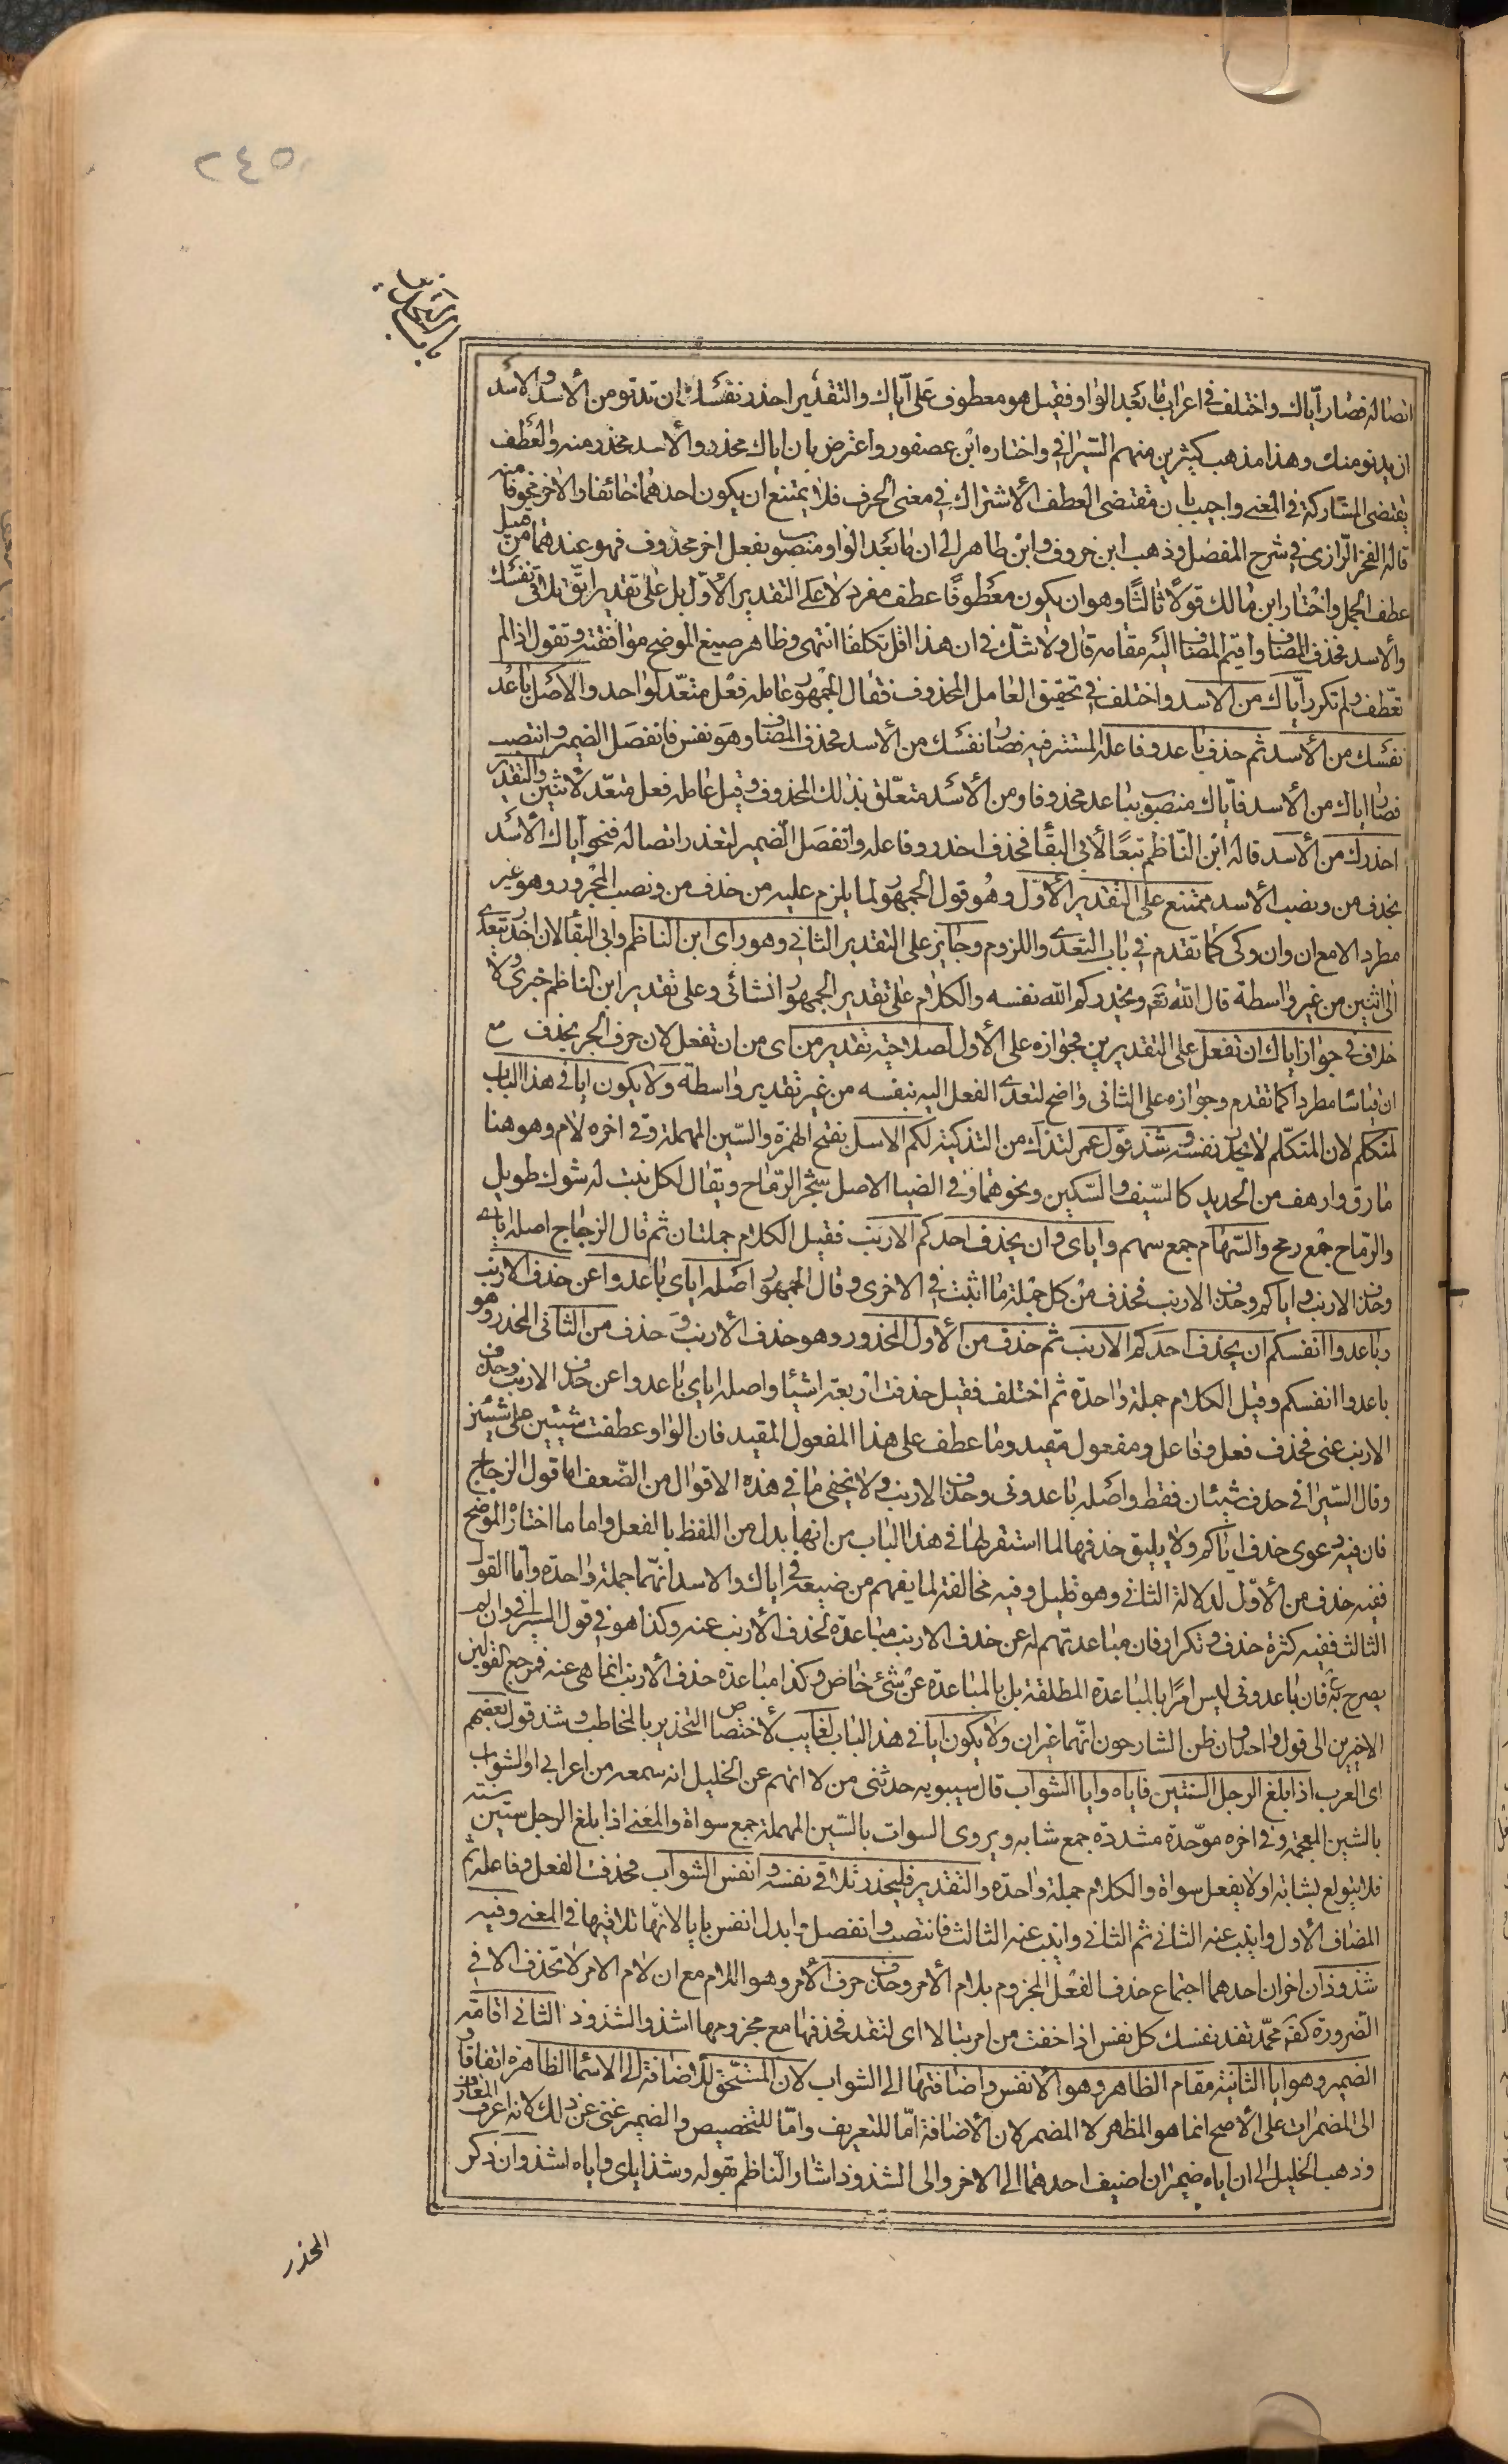 ٢٤٥
باب التحذير
اتصاله فصار اياك واختلف في اعراب ما بعد الواو فقيل هو معطوف على اياك والتقدير احذر نفسك ان تدنو من الأسد والاسد
ان يدنو منك وهذا مذهب كثيرين منهم السيرافي واختاره ابن عصفور واعترض بان اياك محذر والأسد محذر منه والعطف
يقتضى المشاركة في المعنى واجيب بان مقتضى العطف الأشتراك في معنى الحرف فلا يمتنع ان يكون احدهما خائفا والاخر مخوفا منه
قاله الفخر الرازى في شرح المفصل وذهب ابن خروف وابن طاهر الى ان ما بعد الواو منصوب بفعل اخر محذوف فهو عندهما من قبيل
عطف الجمل واختار ابن مالك قولا ثالثا وهو ان يكون معطوفا عطف مفرد لا على التقدير الأول بل على تقدير اتق تلاقى نفسك
والأسد فحذف المضاف واقيم المضاف اليه مقامه قال ولا شك في ان هذا اقل تكلفا انتهى وظاهر صنيع الموضح موافقته وتقول اذا لم
تعطف ولم تكرر اياك من الاسد واختلف في تحقيق العامل المحذوف فقال الجمهور عامله فعل متعد لواحد والاصل باعد
نفسك من الأسد ثم حذف باعد وفاعله المستتر فيه فصار نفسك من الأسد فحذف المضاف وهو نفس فانفصل الضمير وانتصب
فصار اياك من الاسد فاياك منصوب بباعد محذوفا ومن الأسد متعلق بذلك المحذوف وقيل عامله فعل متعد لاثنين والتقدير
احذرك من الأسد قاله ابن الناظم تبعا لأبي البقا فحذف احذر وفاعله وانفصل الضمير لتعذر اتصاله فنحو اياك الأسد
بحذف من ونصب الأسد ممتنع على التقدير الأول وهو قول الجمهور لما يلزم عليه من حذف من ونصب المجرور وهو غير
مطرد الا مع ان وان وكى كما تقدم في باب التعدى واللزوم وجايز على التقدير الثاني وهو راى ابن الناظم وابى البقا لان احذر يتعدى
الى اثنين من غير واسطة قال الله تعم ويحذركم الله نفسه والكلام على تقدير الجمهور انشائى وعلى تقدير ابن الناظم خبرى ولا
خلاف في جواز اياك ان تفعل على التقديرين فجوازه على الأول لصلاحيته تقدير من اى من ان تفعل لان حرف الجر يحذف مع
ان قياسا مطردا كما تقدم وجوازه على الثانى واضح لتعدى الفعل اليه بنفسه من غير تقدير واسطة ولا يكون ايا في هذا الباب
لمتكلم لان المتكلم لا يحذر نفسه وشذ قول عمر لتذك من التذكية لكم الاسل بفتح الهمزة والسين المهملة وفي اخره لام وهو هنا
ما رق وارهف من الحديد كالسيف والسكين ونحوهما وفي الضيا الاصل شجر الرماح ويقال لكل نبت له شوك طويل
والرماح جمع رمح والسهام جمع سهم واياى وان يحذف احدكم الارنب فقيل الكلام جملتان ثم قال الزجاج اصله اياى
وحذف الارنب واياكم وحذف الارنب فحذف من كل جملة ما اثبت في الاخرى وقال الجمهور اصله اياى باعدوا عن حذف الارنب
وباعدوا انفسكم ان يحذف احدكم الارنب ثم حذف من الأول المحذور وهو حذف الأرنب وحذف من الثانى المحذر وهو
باعدوا انفسكم وقيل الكلام جملة واحدة ثم اختلف فقيل حذفت اربعة اشيا واصله اياى باعدوا عن حذف الارنب وحذف
الارنب عنى فحذف فعل وفاعل ومفعول مقيد وما عطف على هذا المفعول المقيد فان الواو عطفت شيئين على شيئين
وقال السيرافى حذف شيئان فقط واصله باعدونى وحذف الارنب ولا يخفى ما في هذه الاقوال من الضعف اما قول الزجاج
فان فيه دعوى حذف اياكم ولا يليق حذفها لما استقر لها في هذا الباب من انها بدل من اللفظ بالفعل واما ما اختاره الموضح
ففيه حذف من الأول لدلالة الثانى وهو قليل وفيه مخالفة لما يفهم من صنيعه في اياك والاسد انهما جملة واحدة واما القول
الثالث ففيه كثرة حذف وتكرار فان مباعدتهم له عن حذف الارنب مباعدة لحذف الأرنب عنه وكذا هو في قول السيرافى وان لم
يصرح به فان باعدونى ليس امرا بالمباعدة المطلقة بل بالمباعدة عن شئ خاص وكذا مباعدة حذف الأرنب انما هى عنه فمرجع القولين
الاخيرين الى قول واحد وان ظن الشارحون انهما غيران ولا يكون ايا في هذا الباب لغايب لأختصاص التحذير بالمخاطب وشذ قول بعضهم
اى العرب اذا بلغ الرجل الستين فاياه وايا الشواب قال سيبويه حدثنى من لا اتهم عن الخليل انه سمعه من اعرابى اوالشواب
بالشين المعجمة وفي اخره موحدة مشددة جمع شابة ويروى السوات بالسين المهملة جمع سواة والمعنى اذا بلغ الرجل ستين سنة
فلا يتولع بشابة او لا يفعل سواة والكلام جملة واحدة والتقدير فليحذر تلاقى نفسه وانفس الشواب فحذف الفعل وفاعله ثم
المضاف الأول وانيب عنه الثانى ثم الثانى وانيب عنه الثالث فانتصب وانفصل وابدل انفس بايا لانها تلاقيها في المعنى وفيه
شذوذان اخران احدهما اجتماع حذف الفعل المجزوم بلام الأمر وحذف حرف الأمر وهو اللام مع ان لام الامر لا تحذف الا في
الضرورة كقه محمد تفد نفسك كل نفس اذا خفت من امر تبالا اى لتفد فحذفها مع مجزومها اشذ والشذوذ الثانى اقامة
الضمير وهو ايا الثانية مقام الظاهر وهو الأنفس واضافتها الى الشواب لان المستحق للاضافة الى الاسما الظاهرة اتفاقا و
الى المضمرات على الأصح انما هو المظهر لا المضمر لان الأضافة اما للتعريف واما للتخصيص والضمير غنى عن ذلك لانه اعرف المعارف
وذهب الخليل الى ان اياه ضميران اضيف احدهما الى الاخر والى الشذوذ اشار الناظم بقوله وشذ اياى واياه اشذ وان ذكر
المحذر